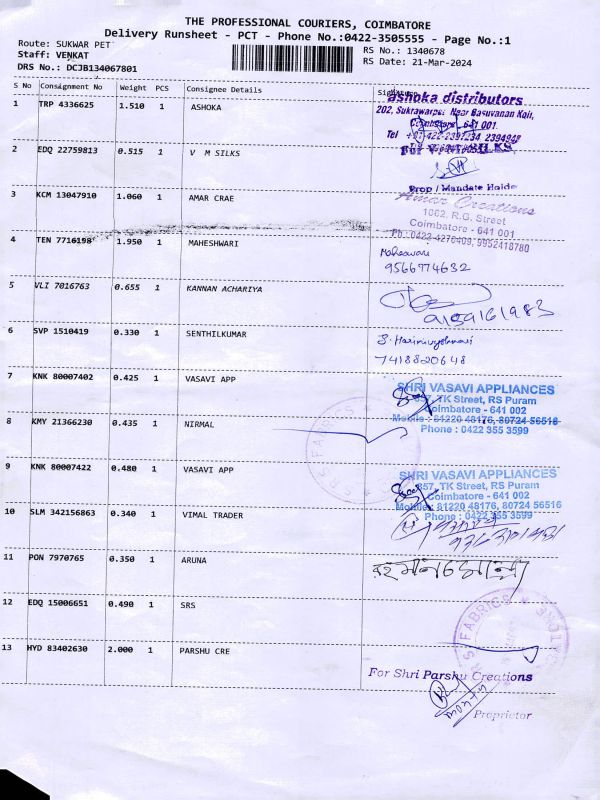 THE PROFESSIONAL COURIERS, COIMBATORE
Delivery Runsheet - PCT - Phone No.:0422-3505555 - Page No.:1
Route: SUKWAR PET
RS No.: 1340678
Staff: VENKAT
RS Date: 21-Mar-2024
DRS No.: DCJB134067801
S No Consignment No Weight PCS Consignee Details
1 TRP 4336625 1.510 1 ASHOKA
ashoka distributors
202, Sukrawarpet Near Basuvanan Koil,
Coimbatore - 641 001
Tel
2 EDQ 22759813 0.515 1 V M SILKS
Prop / Mandate Holde
3 KCM 13047910 1.060 1 AMAR CRAE
Amar Creations
1062, R.G. Street
Coimbatore - 641 001
Ph.: 0422-4276409, 9952418780
4 TEN 7716198 1.950 1 MAHESHWARI
Maheswari
9566774632
5 VLI 7016763 0.655 1 KANNAN ACHARIYA
9159161983
6 SVP 1510419 0.330 1 SENTHILKUMAR
7418820648
7 KNK 80007402 0.425 1 VASAVI APP
SHRI VASAVI APPLIANCES
357, TK Street, RS Puram
Coimbatore - 641 002
Mobile : 81220 48176, 80724 56516
Phone : 0422 355 3599
8 KMY 21366230 0.435 1 NIRMAL
S R S FABRICS
9 KNK 80007422 0.480 1 VASAVI APP
SHRI VASAVI APPLIANCES
357, TK Street, RS Puram
Coimbatore - 641 002
Mobile : 81220 48176, 80724 56516
Phone : 0422 355 3599
10 SLM 342156863 0.340 1 VIMAL TRADER
11 PON 7970765 0.350 1 ARUNA
12 EDQ 15006651 0.490 1 SRS
S R S FABRICS
13 HYD 83402630 2.000 1 PARSHU CRE
For Shri Parshu Creations
Proprietor